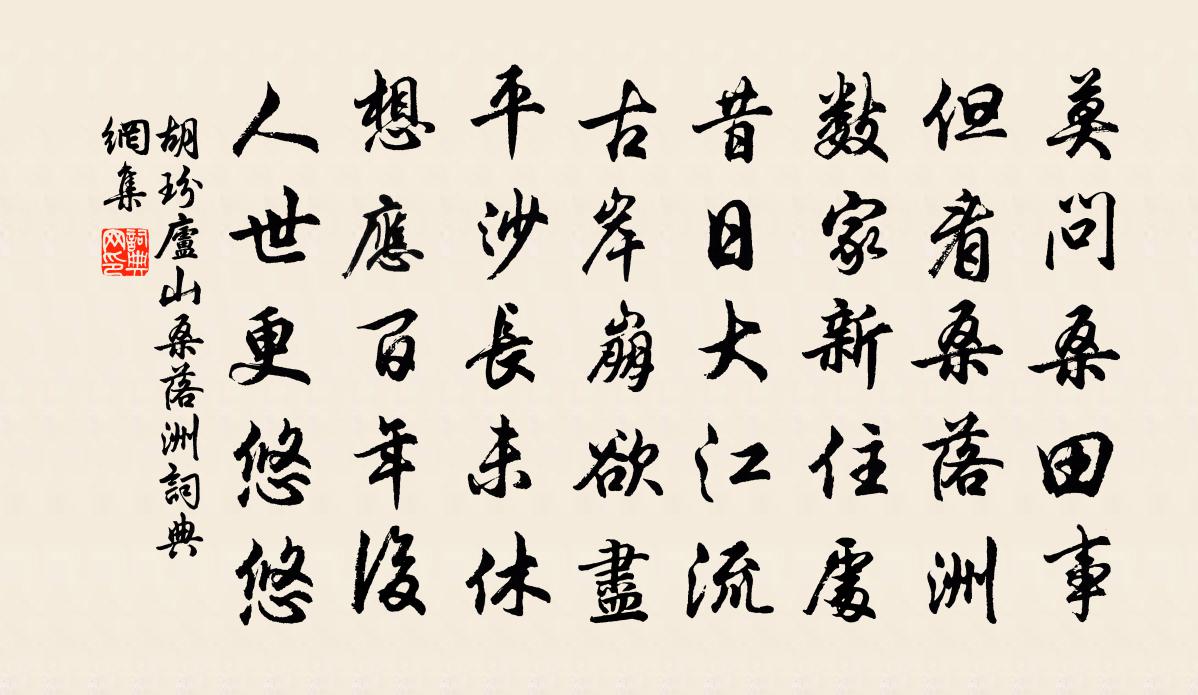 莫問桑田事
但看桑落洲
數家新住處
昔日大江流
古岸崩欲盡
平沙長未休
想應百年後
人世更悠悠
胡玢廬山桑落洲詞典
網集
詞典網印